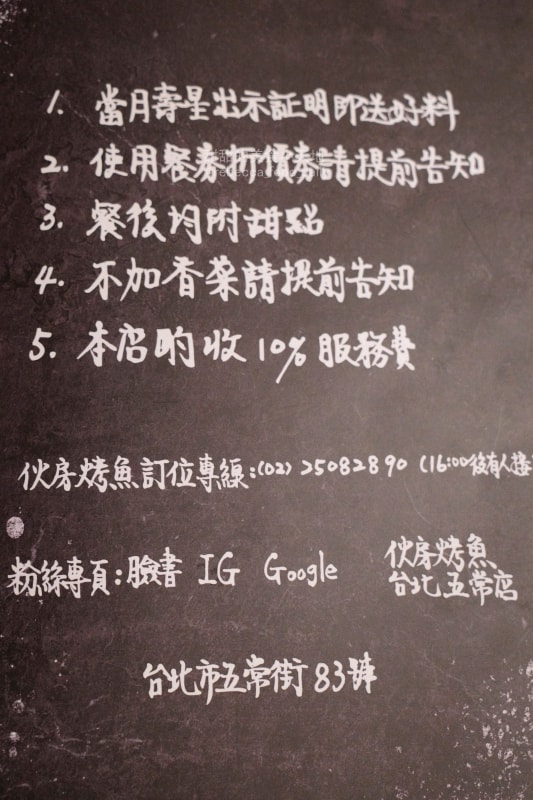 1. 當月壽星出示証明即送好料
2. 使用餐券折價券請提前告知
3. 餐後均附甜點
4. 不加香菜請提前告知
5. 本店酌收10%服務費
伙房烤魚訂位專線:(02)25082890 (16:00後有人接
粉絲專頁:臉書 IG Google 伙房烤魚
台北五常店
台北市五常街83號